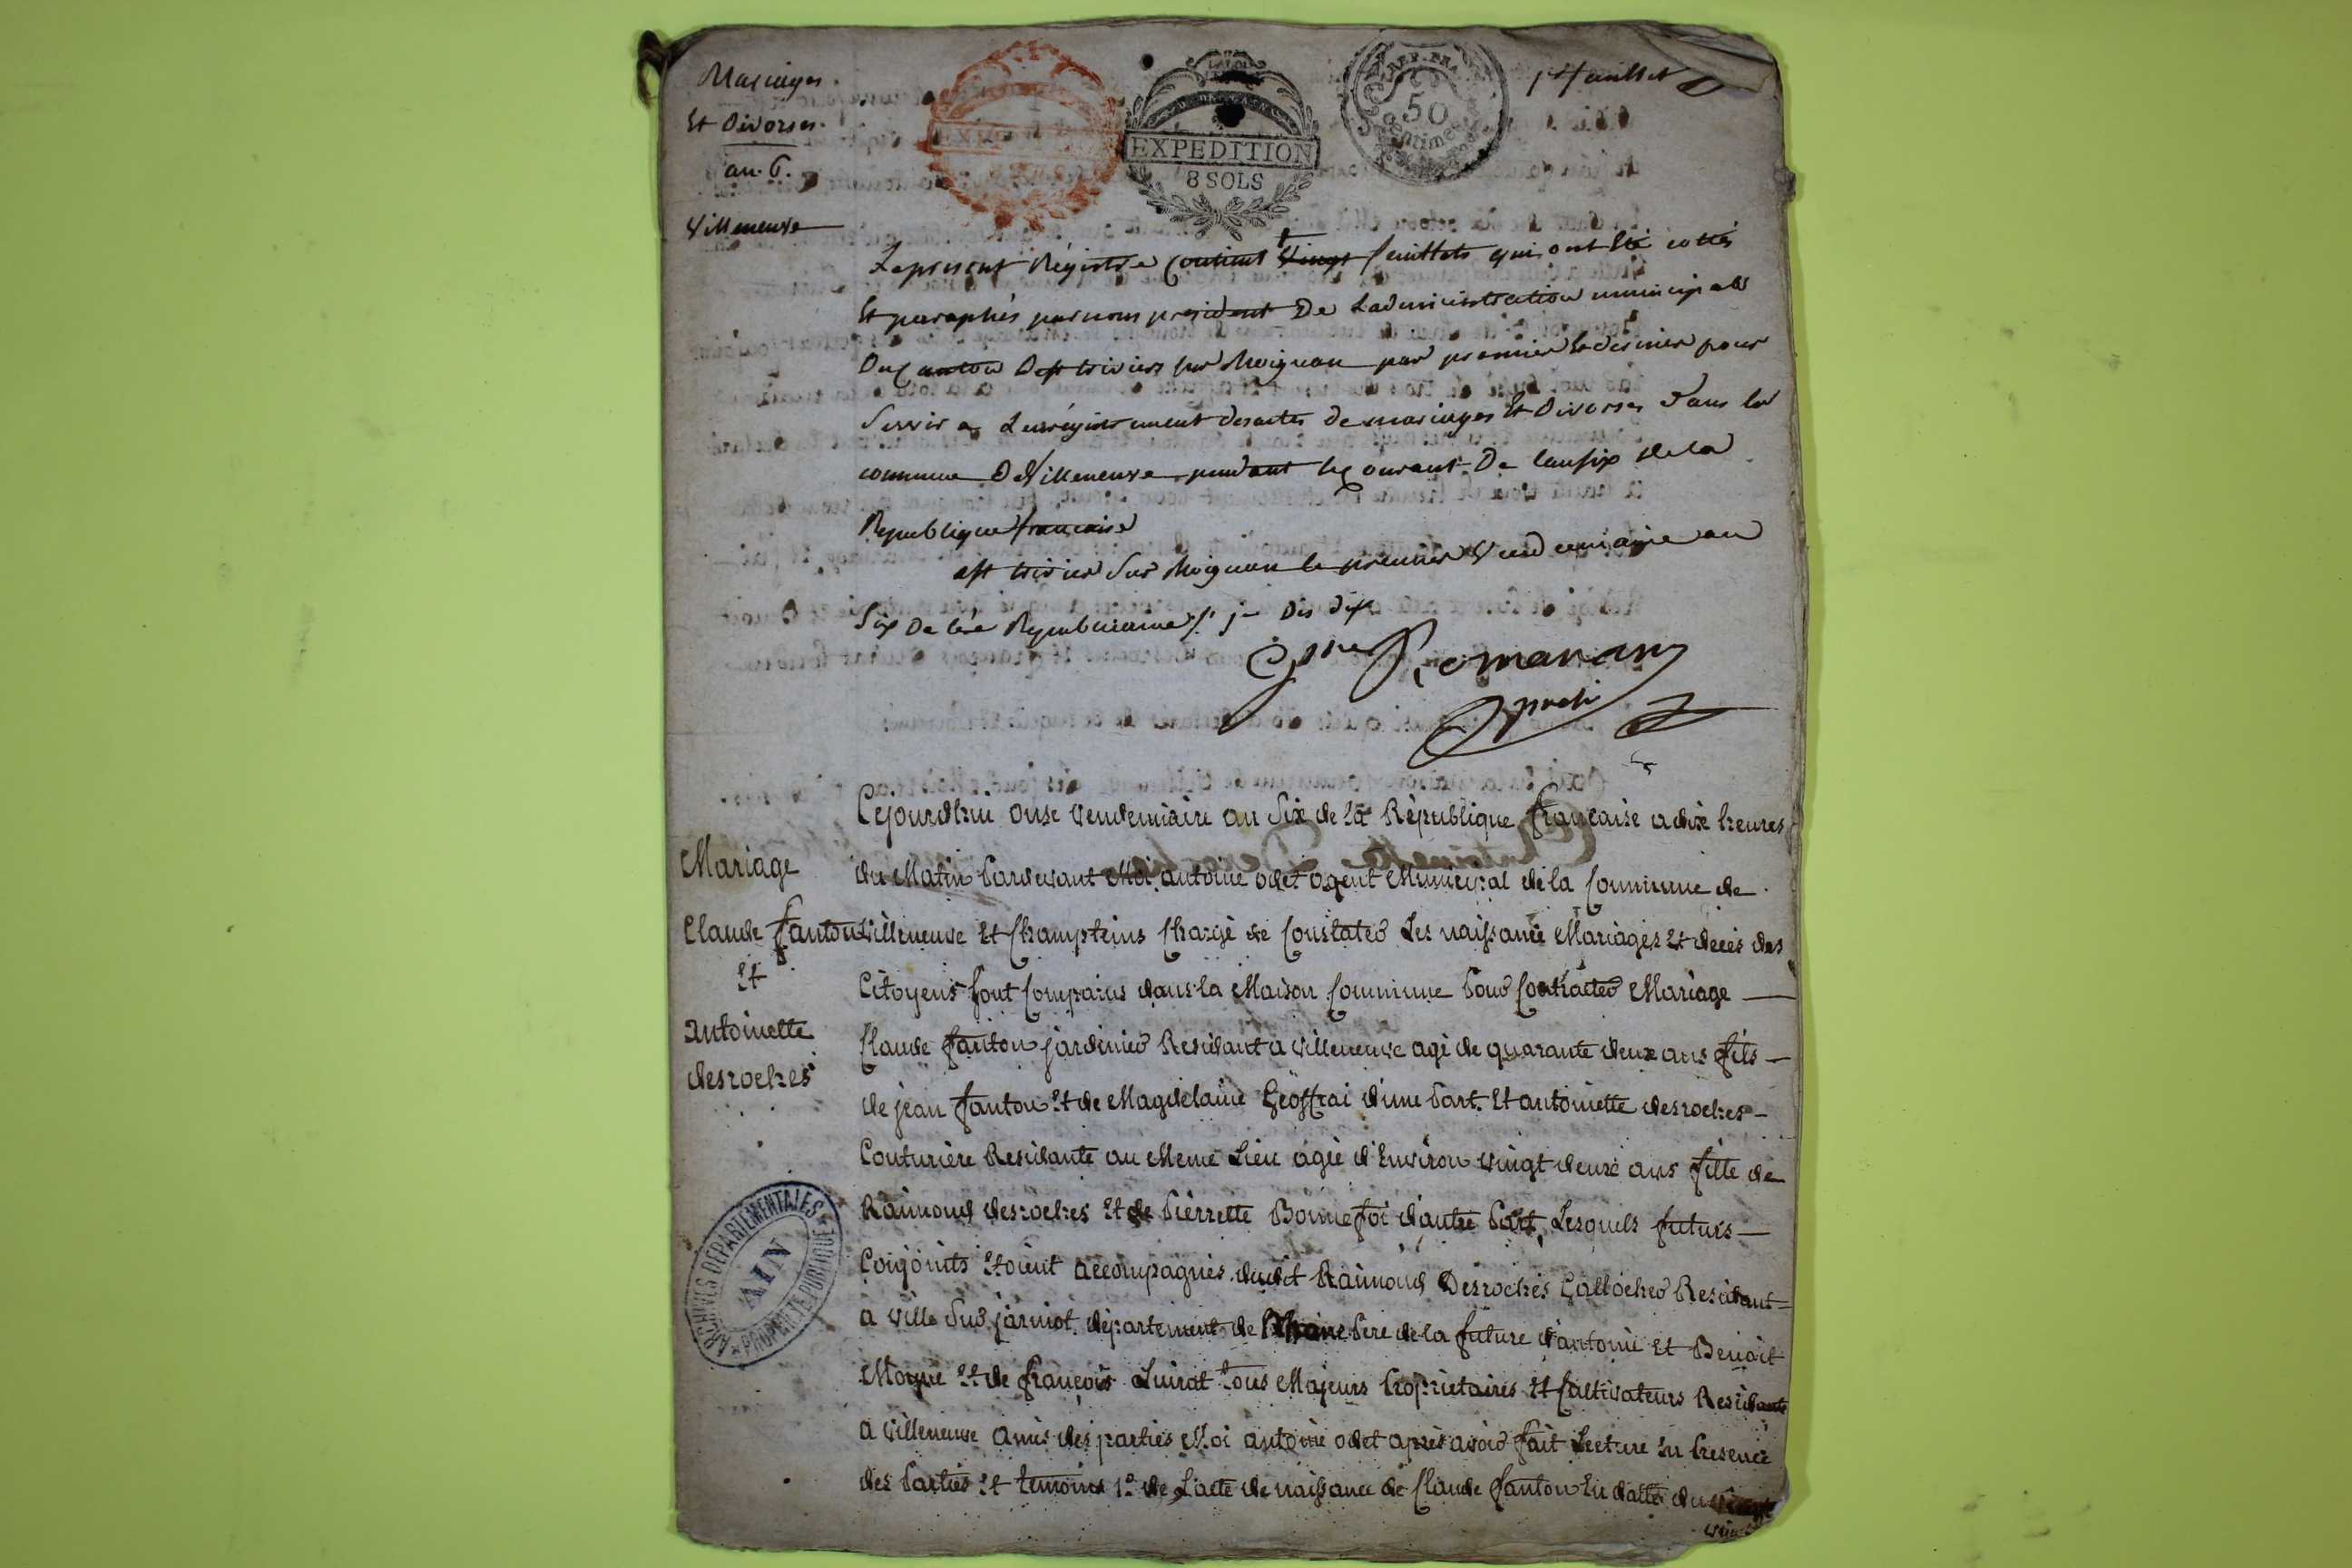 Mariages
Et Divorses
an 6.
Villeneuve
EXPEDITION
8 SOLS
REP. FRA
50
centimes
1er feuillet
Le present Régistre contient vingt feuillets qui ont été cottés
Et paraphés par nous president De Ladministration municipale
Du Canton De st trivier sur Moignan par premier Et dernier pour
Servir a Lenrégistrement des actes de mariages Et Divorses dans la
commune De Villeneuve pendant le Courant De lan six de la
Republique francaise
a st trivier sur Moignan le premier Vendemiaire an
Six De lére Republicaine /. je Dis dix
Romanans
presdt
Cejourdhui onse Vendemiaire an Six de la République française a dix heures
Mariage
Claude fanton
Et
antoinette
desroches
du Matin Pardevant Moi antoine odet agent Municipal de la Commune de
Villeneuve Et Champteins Chargé de Constater Les naissance Mariages Et decès des
Citoyens sont Comparus dans la Maison Commune Pour Contracter Mariage
Claude fanton jardinier Residant a Villeneuve agé de quarante deux ans fils
de jean fanton Et de Magdelaine Geoffrai d'une Part. Et antoinette desroches
Couturière Residante au Meme Lieu agée d'Environ Vingt deux ans fille de
Raimond desroches Et de Pierrette Bonnefoi d'autre Part, Lesquels futurs
Conjoints Etoient accompagnés dudit Raimond Desroches Galocher Residant
a Ville Sur jarniot département de Rhone Pere de la future d'antoine Et Benoit
Moyne Et de françois Luirat tous Majeurs Propriétaires Et Cultivateurs Residants
a Villeneuve amis des parties Moi antoine odet après avoir fait Lecture En Presence
des Parties Et temoins 1º de Lacte de naissance de Claude fanton En datte du
ARCHIVES DEPARTEMENTALES
AIN
PROPRIETE PUBLIQUE